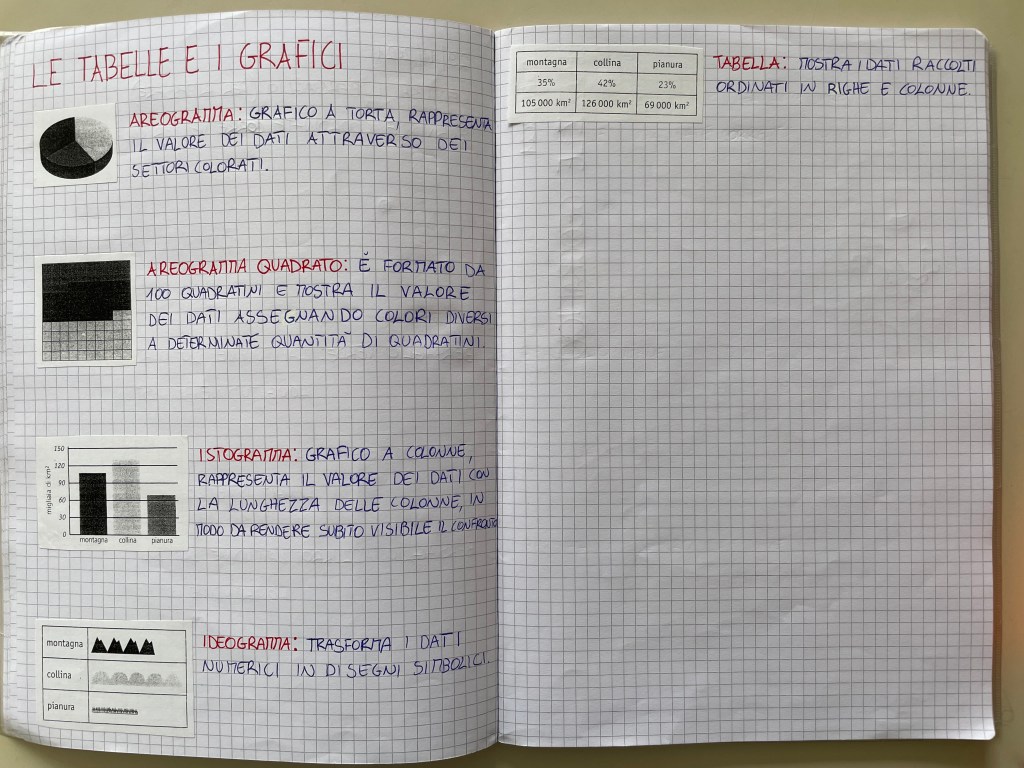 LE TABELLE E I GRAFICI
AREOGRAMMA: GRAFICO A TORTA, RAPPRESENTA
IL VALORE DEI DATI ATTRAVERSO DEI
SETTORI COLORATI.
AREOGRAMMA QUADRATO: È FORMATO DA
100 QUADRATINI E MOSTRA IL VALORE
DEI DATI ASSEGNANDO COLORI DIVERSI
A DETERMINATE QUANTITÀ DI QUADRATINI.
migliaia di km²
150
120
90
60
30
0
montagna collina pianura
ISTOGRAMMA: GRAFICO A COLONNE,
RAPPRESENTA IL VALORE DEI DATI CON
LA LUNGHEZZA DELLE COLONNE, IN
MODO DA RENDERE SUBITO VISIBILE IL CONFRONTO
montagna
collina
pianura
IDEOGRAMMA: TRASFORMA I DATI
NUMERICI IN DISEGNI SIMBOLICI.
montagna collina pianura
35% 42% 23%
105 000 km² 126 000 km² 69 000 km²
TABELLA: MOSTRA I DATI RACCOLTI
ORDINATI IN RIGHE E COLONNE.